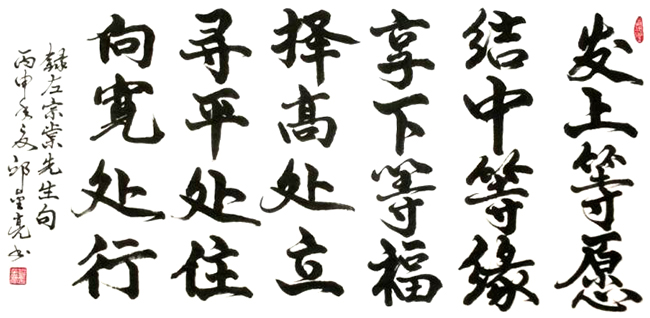 发上等愿
结中等缘
享下等福
择高处立
寻平处住
向宽处行
录左宗棠先生句
丙申年夏邱星亮书